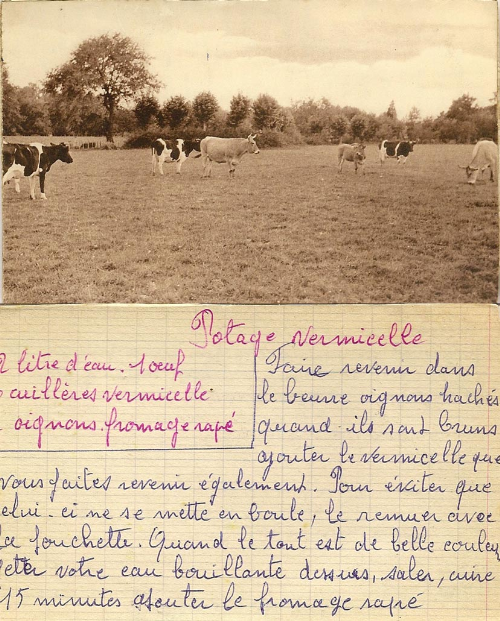 Potage vermicelle
litre d'eau. 1 oeuf
cuillères vermicelle
oignons. fromage rapé
Faire revenir dans
le beurre oignons hachés
quand ils sont bruns
ajouter le vermicelle que
vous faites revenir également. Pour éviter que
celui-ci ne se mette en boule, le remuer avec
la fouchette. Quand le tout est de belle couleur
jeter votre eau bouillante dessus, saler, cuire
15 minutes ajouter le fromage rapé